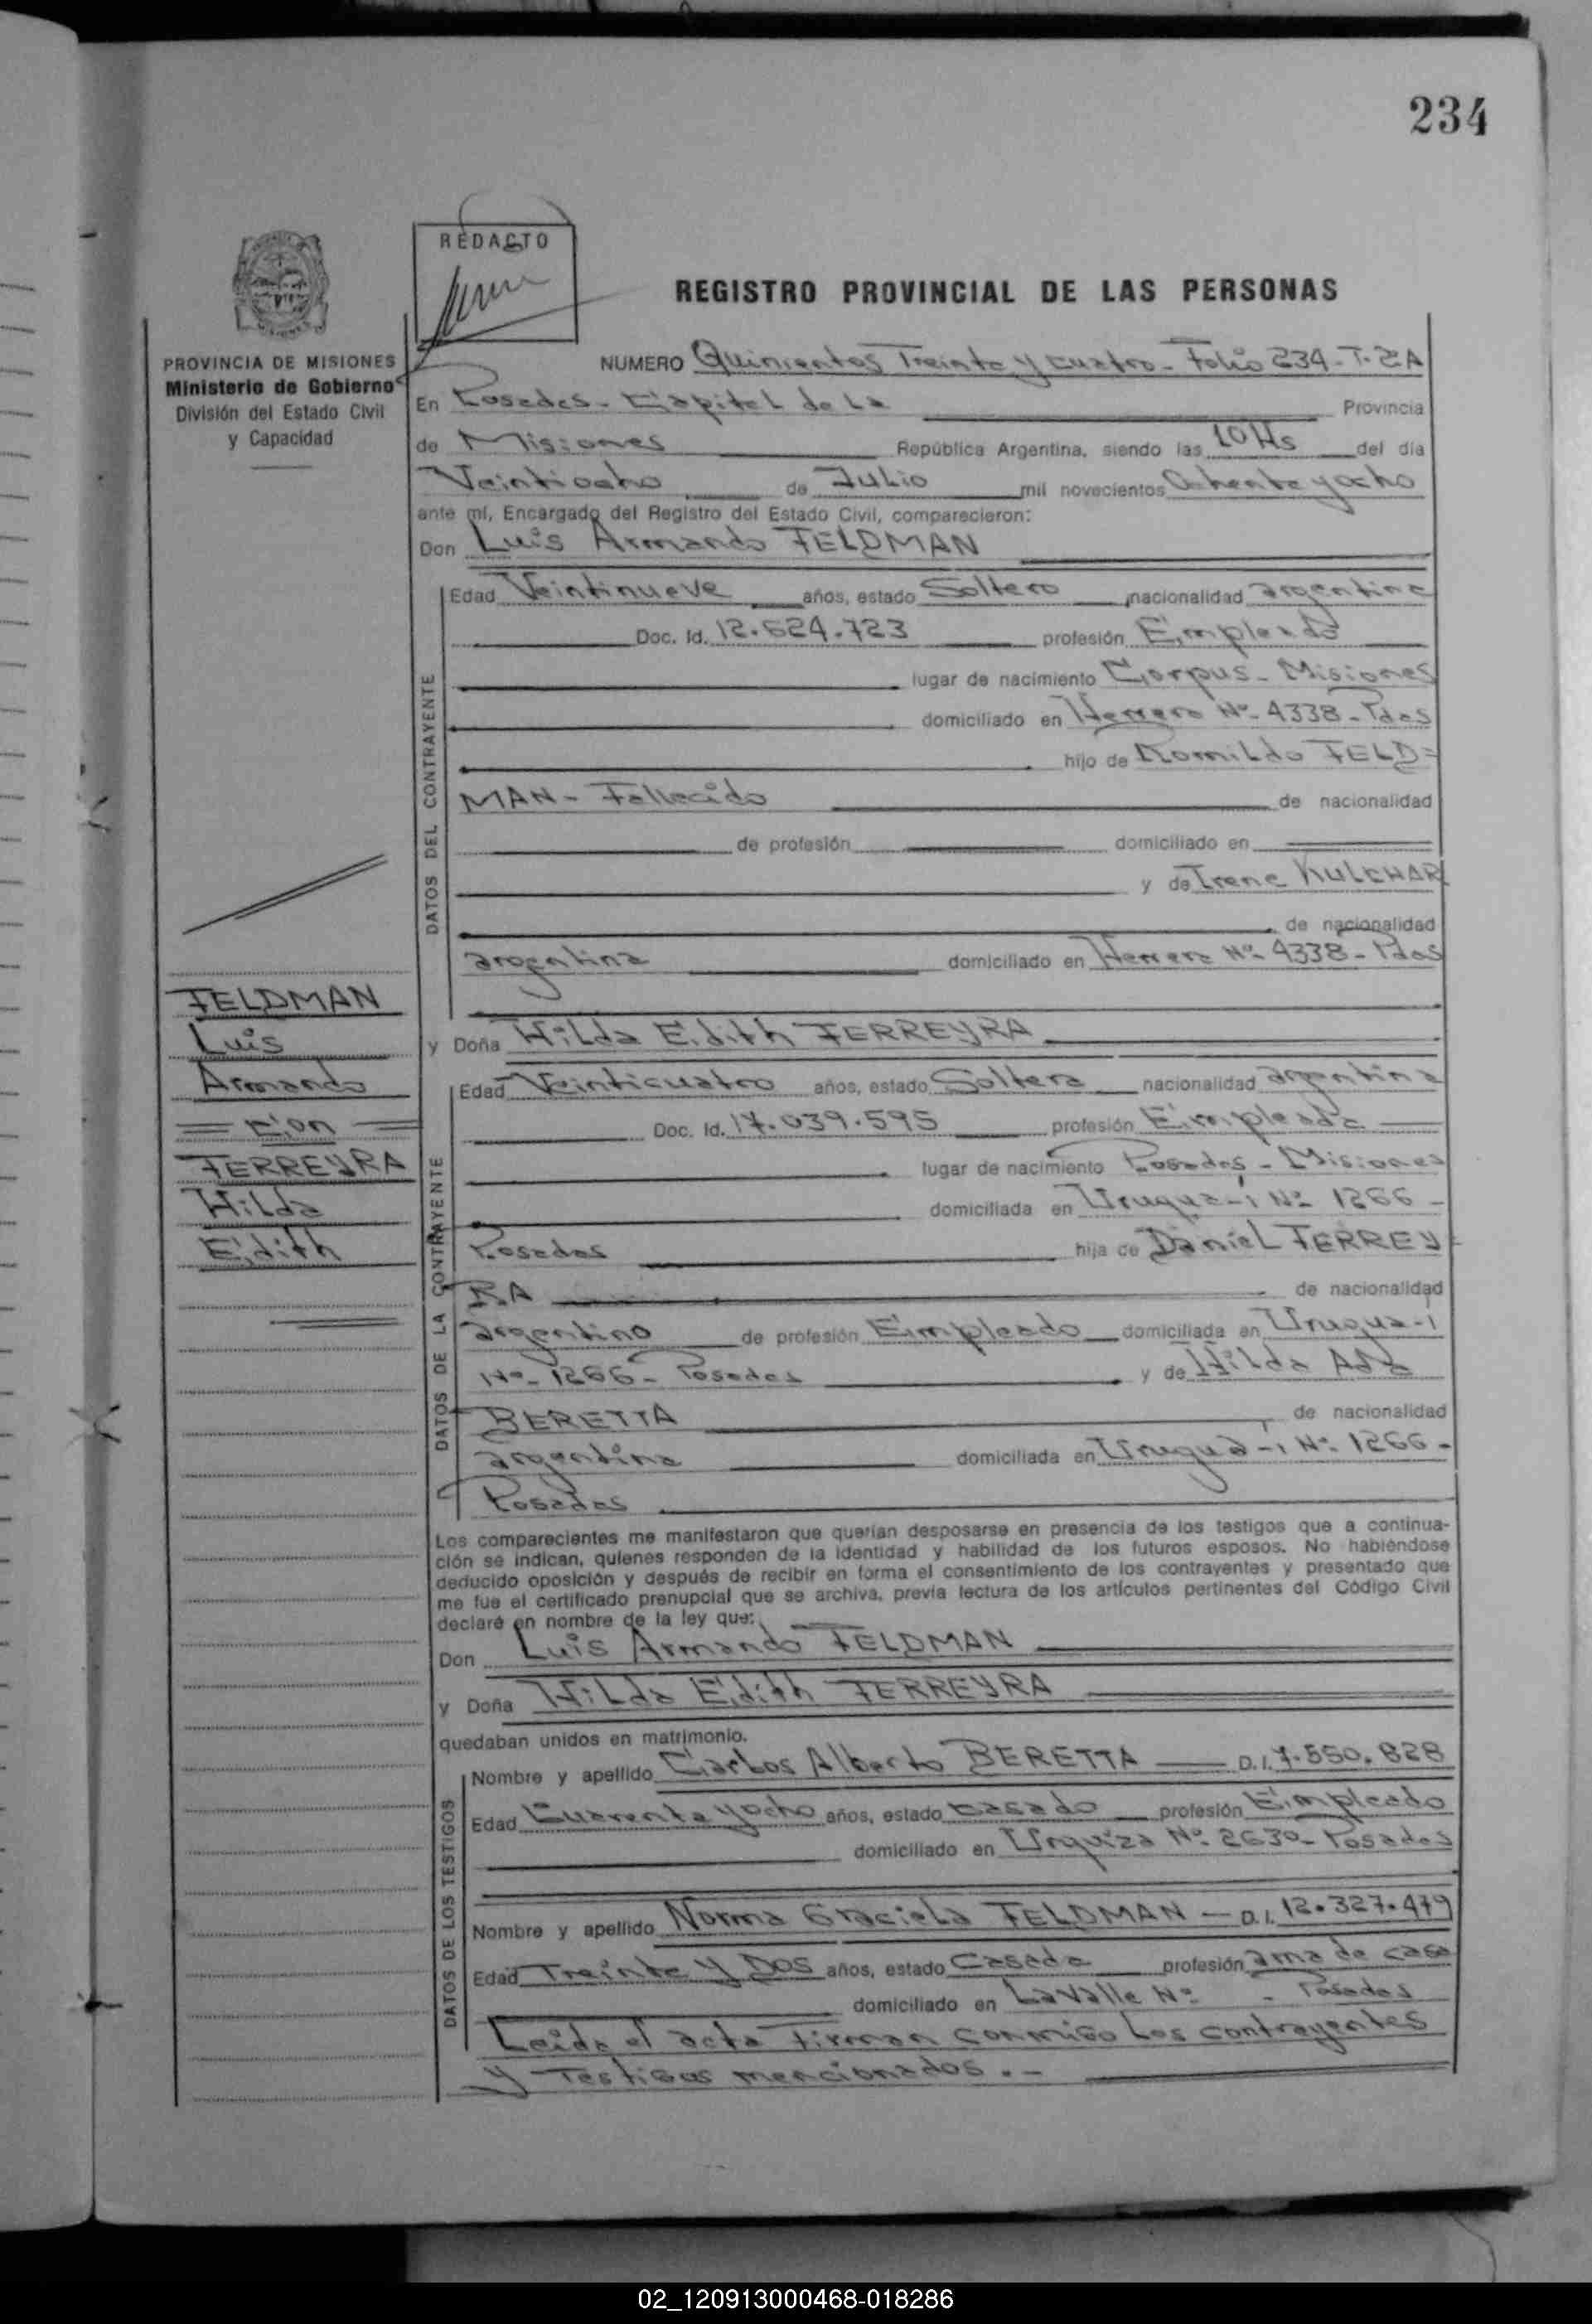 234
REDACTO
REGISTRO PROVINCIAL DE LAS PERSONAS
PROVINCIA DE MISIONES
Ministerio de Gobierno
División del Estado Civil
y Capacidad
NUMERO Quinientos Treinta y cuatro - Folio 234 - T. 2º A
En Posadas - Capital de La Provincia
de Misiones República Argentina, siendo las 10 Hs del día
Veintiocho de Julio mil novecientos Ochenta y ocho
ante mí, Encargado del Registro del Estado Civil, comparecieron:
Don Luis Armando FELDMAN
DATOS DEL CONTRAYENTE
Edad Veintinueve años, estado Soltero nacionalidad argentina
Doc. Id. 12.624.723 profesión Empleado
lugar de nacimiento Corpus - Misiones
domiciliado en Herrera Nº 4338 - Pdas
hijo de Romildo FELD=
MAN - Fallecido de nacionalidad
de profesión domiciliado en
y de Irene KULCHAR
de nacionalidad
argentina domiciliado en Herrera Nº 4338 - Pdas
FELDMAN
Luis
Armando
= Con =
FERREYRA
Hilda
Edith
y Doña Hilda Edith FERREYRA
DATOS DE LA CONTRAYENTE
Edad Veinticuatro años, estado Soltera nacionalidad argentina
Doc. Id. 17.039.595 profesión Empleada
lugar de nacimiento Posadas - Misiones
domiciliada en Urugua-í Nº 1266 -
Posadas hija de Daniel FERREY=
RA de nacionalidad
argentino de profesión Empleado domiciliada en Urugua-í
Nº 1266 - Posadas y de Hilda Ada
BERETTA de nacionalidad
argentina domiciliada en Urugua-í Nº 1266 -
Posadas
Los comparecientes me manifestaron que querían desposarse en presencia de los testigos que a continua-
ción se indican, quienes responden de la identidad y habilidad de los futuros esposos. No habiéndose
deducido oposición y después de recibir en forma el consentimiento de los contrayentes y presentado que
me fue el certificado prenupcial que se archiva, previa lectura de los artículos pertinentes del Código Civil
declaré en nombre de la ley que:
Don Luis Armando FELDMAN
y Doña Hilda Edith FERREYRA
quedaban unidos en matrimonio.
DATOS DE LOS TESTIGOS
Nombre y apellido Carlos Alberto BERETTA D.I. 7.550.828
Edad Cuarenta y ocho años, estado casado profesión Empleado
domiciliado en Urquiza Nº 2630 - Posadas
Nombre y apellido Norma Graciela FELDMAN - D.I. 12.327.479
Edad Treinta y Dos años, estado Casada profesión ama de casa
domiciliado en Lavalle Nº - Posadas
Leída el acta Firman conmigo Los contrayentes
y Testigos mencionados . -
02_120913000468-018286